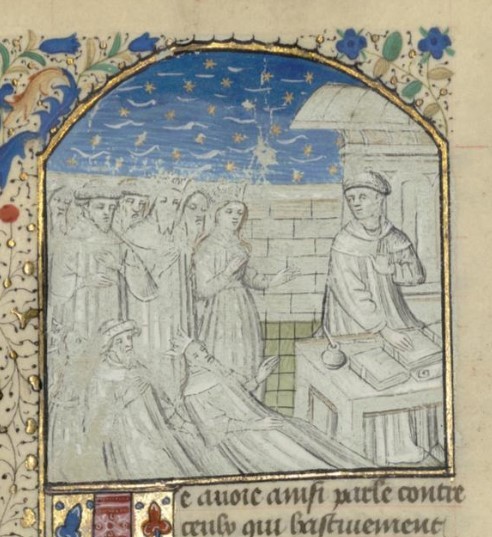 e avoie ainsi parle contre
ceulx qui hastiuement